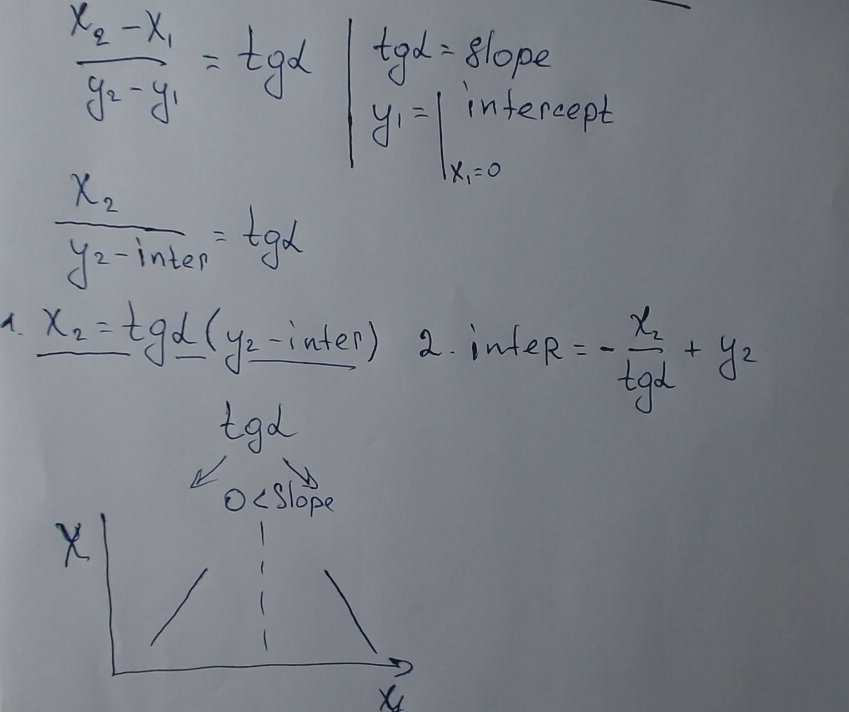 x₂ - x₁ / y₂ - y₁ = tgα | tgα = slope
y₁ = | intercept
x₁=0
x₂ / y₂ - inter = tgα
1. x₂ = tgα (y₂ - inter) 2. inteR = - x₂ / tgα + y₂
tgα
0 < Slope
X